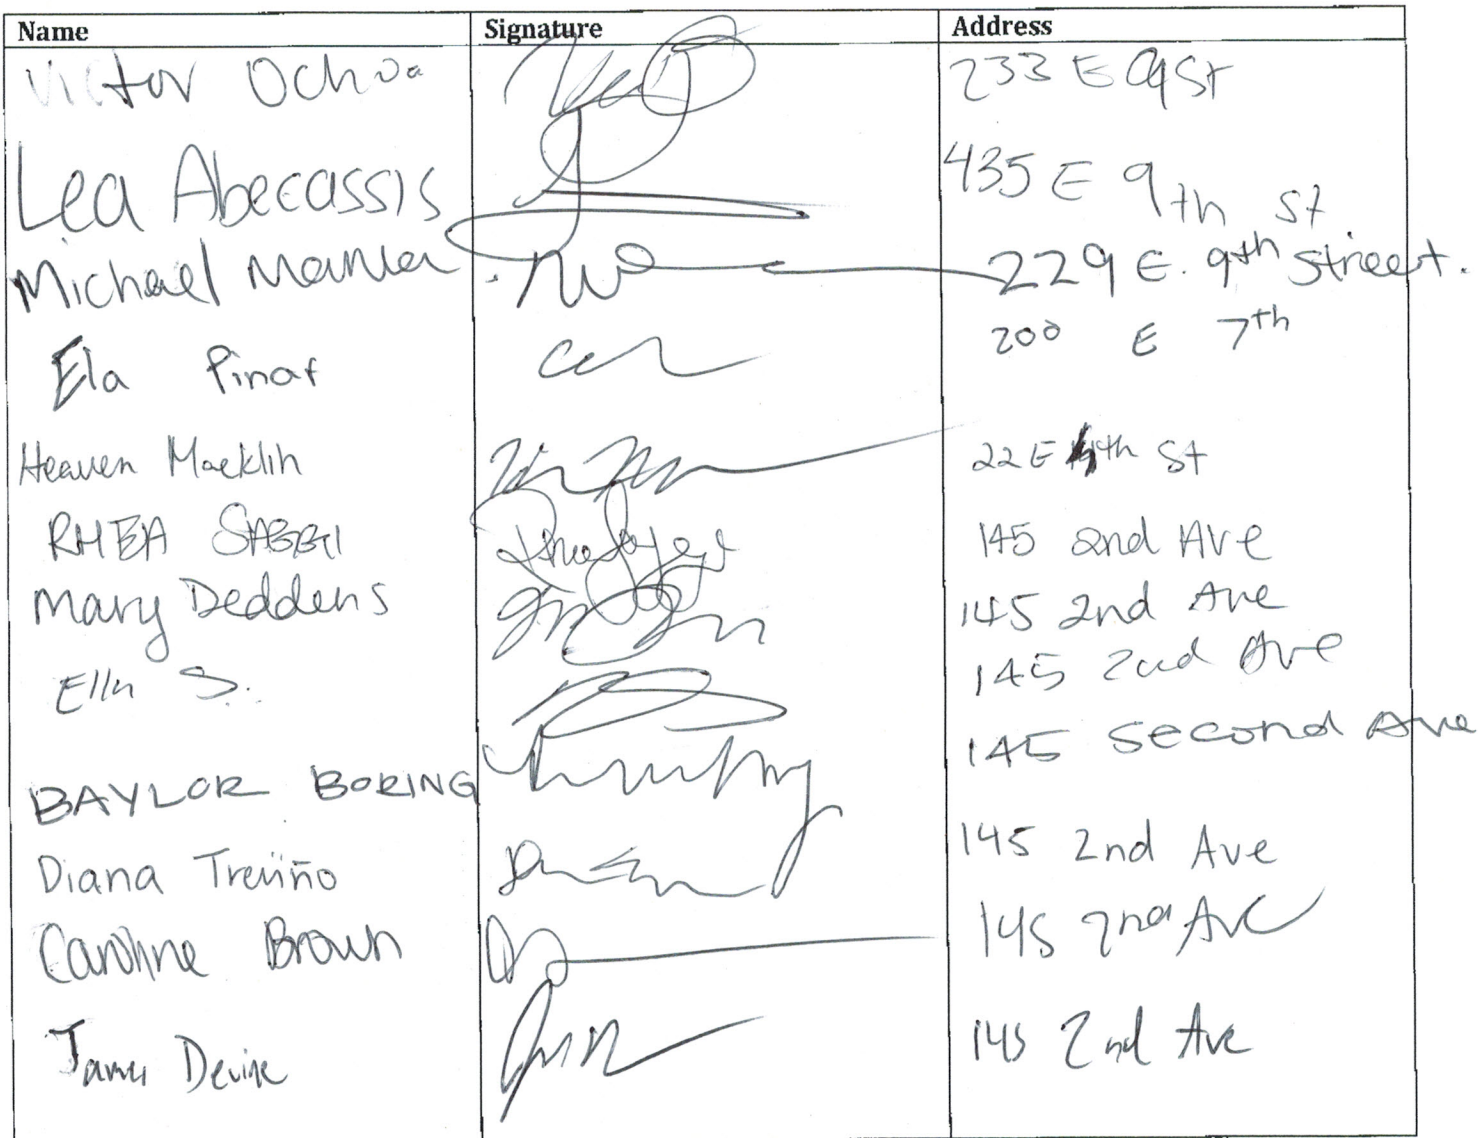 Name Signature Address
Victor Ochoa 233 E 9 St
Lea Abecassis 435 E 9th St
Michael 229 E. 9th Street.
Ela Pinar 200 E 7th
Heaven Macklin 22 E 4th St
RHEA 145 2nd Ave
Mary Deddens 145 2nd Ave
Ella S. 145 2nd Ave
BAYLOR BORING 145 Second Ave
Diana Treviño 145 2nd Ave
Caroline Brown 145 2nd Ave
James Devine 145 2nd Ave